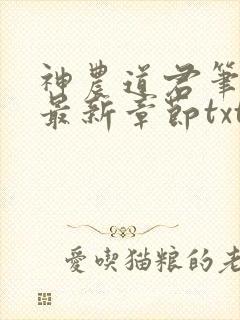 神農道君筆
最新章節txt
愛喫猫粮的老